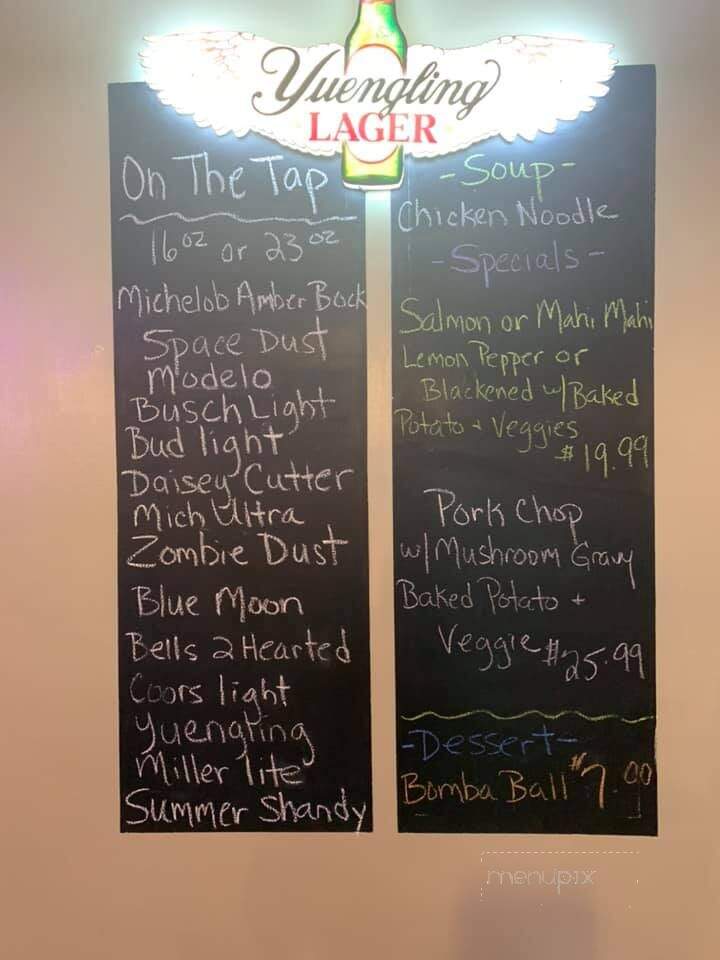 Yuengling
LAGER
On The Tap
16oz or 23oz
Michelob Amber Bock
Space Dust
Modelo
Busch Light
Bud light
Daisey Cutter
Mich Ultra
Zombie Dust
Blue Moon
Bells 2 Hearted
Coors light
Yuengling
Miller lite
Summer Shandy
-Soup-
Chicken Noodle
-Specials-
Salmon or Mahi Mahi
Lemon Pepper or
Blackened w/Baked
Potato + Veggies
$19.99
Pork Chop
w/Mushroom Gravy
Baked Potato +
Veggie $25.99
-Dessert-
Bomba Ball $7.00
menupix